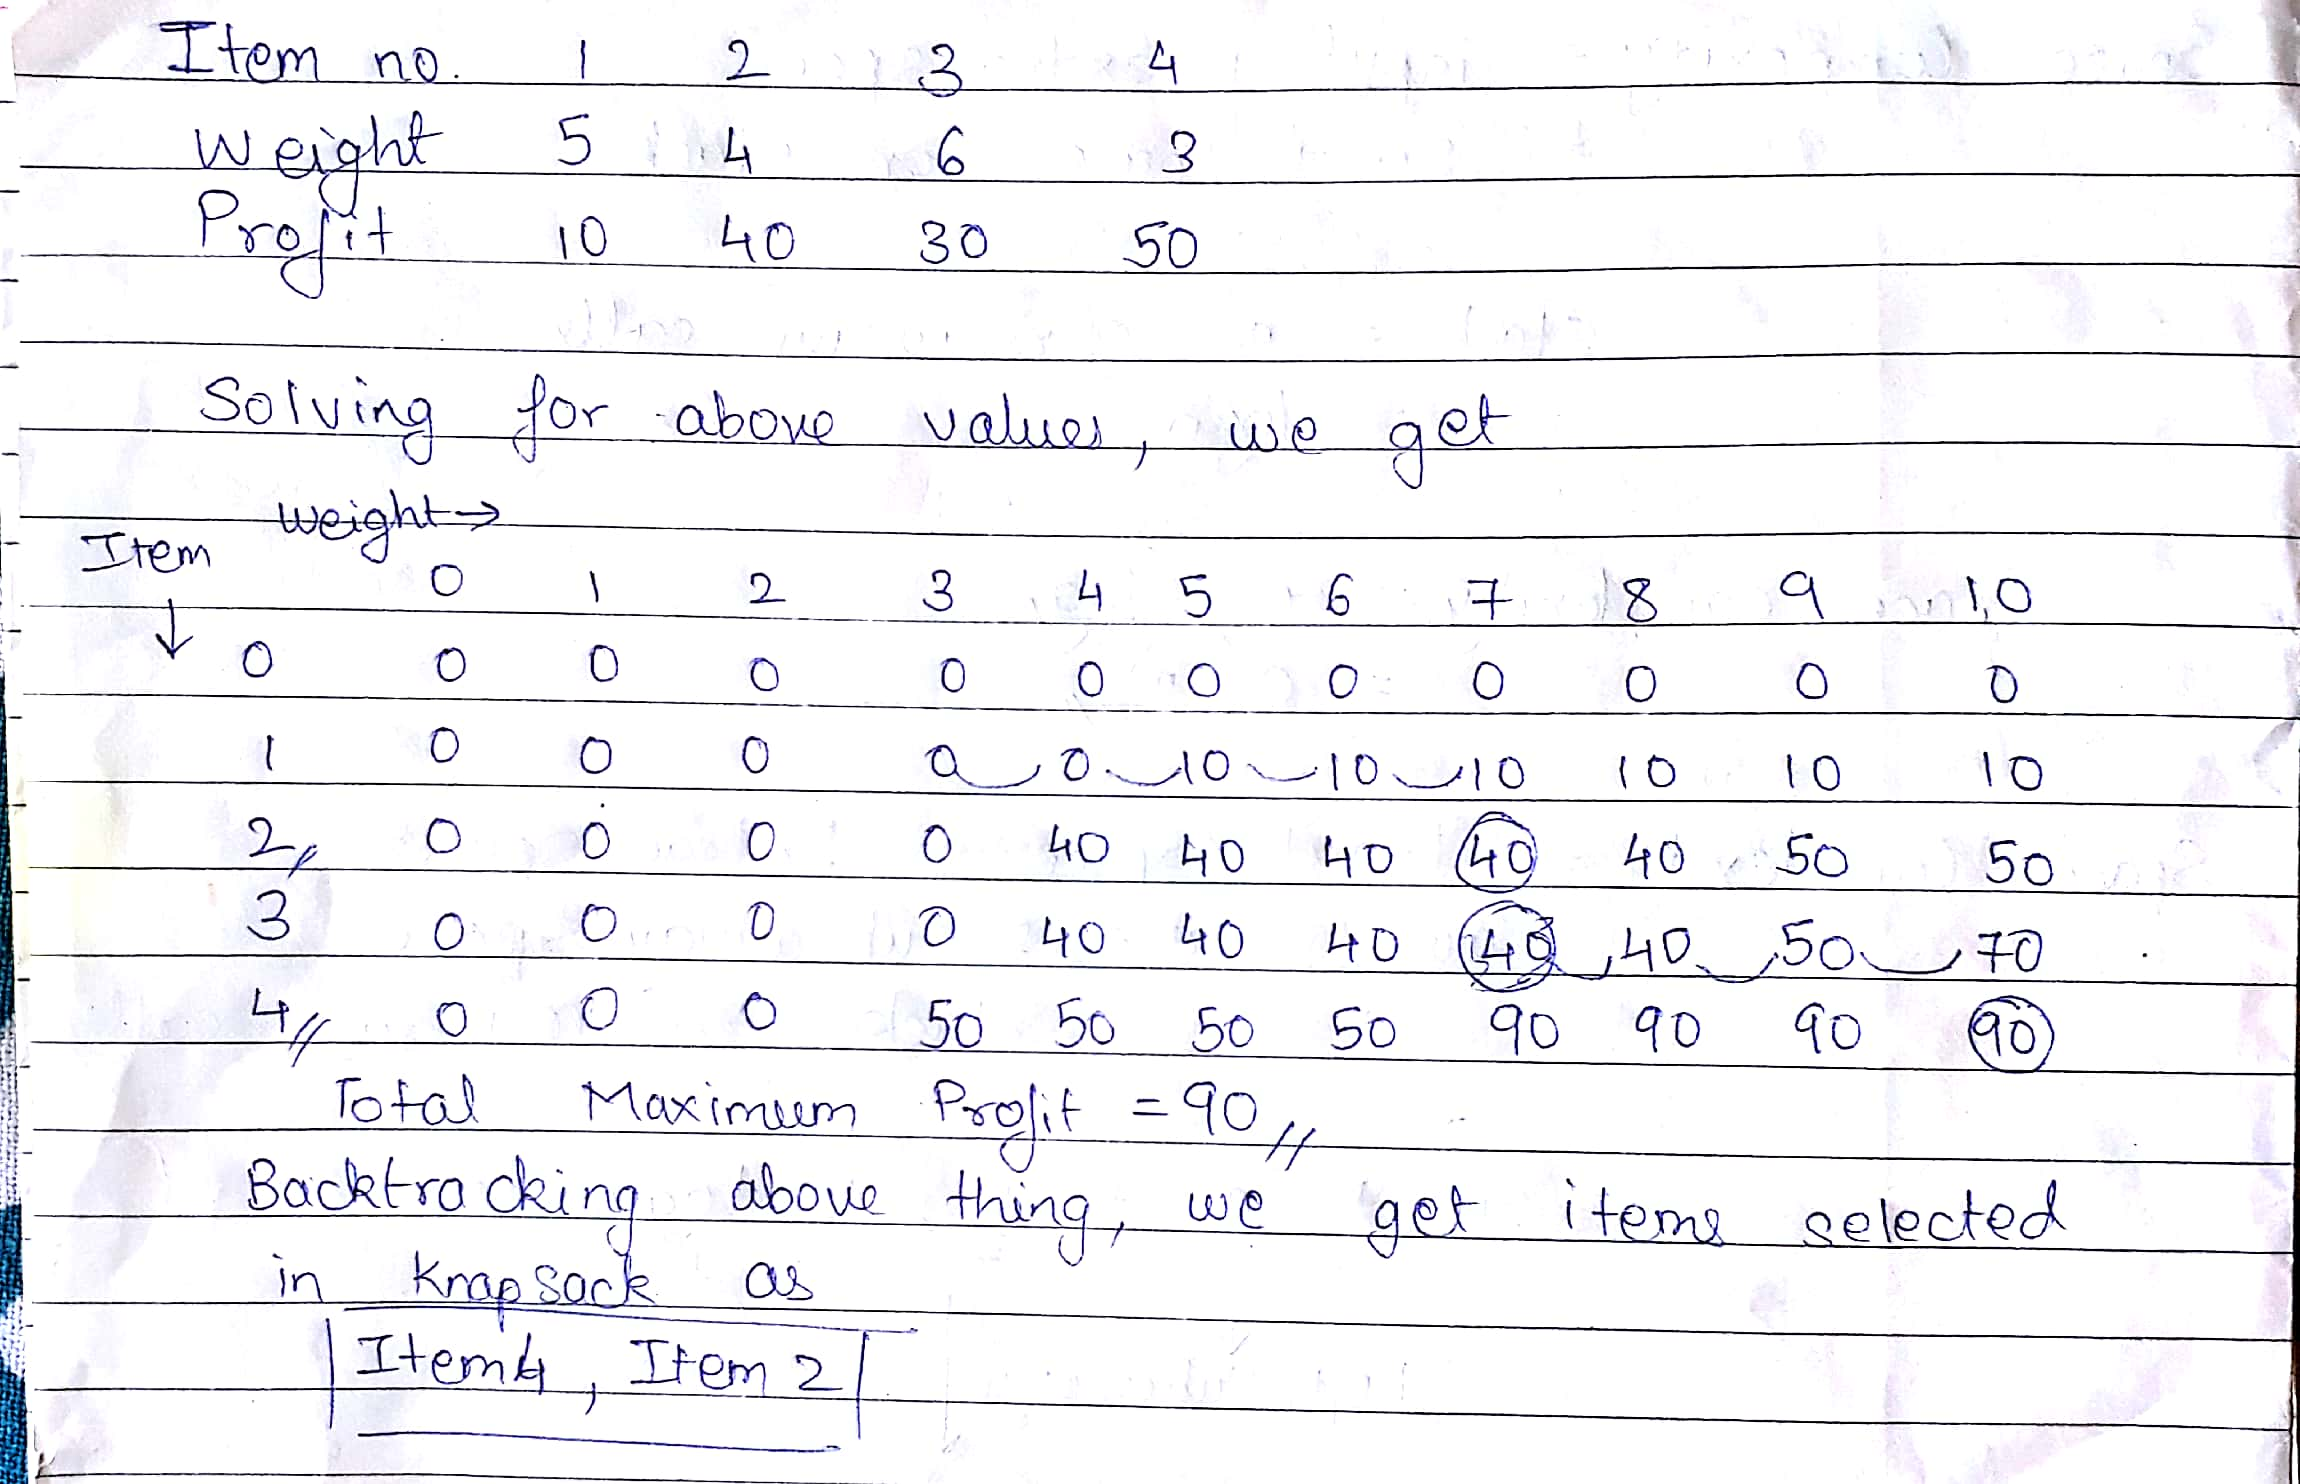 Item no. 1 2 3 4
Weight 5 4 6 3
Profit 10 40 30 50
Solving for above values, we get
weight→
Item
0 1 2 3 4 5 6 7 8 9 10
↓ 0 0 0 0 0 0 0 0 0 0 0 0
1 0 0 0 0 0 10 10 10 10 10 10
2 0 0 0 0 40 40 40 40 40 50 50
3 0 0 0 0 40 40 40 40 40 50 70
4 0 0 0 50 50 50 50 90 90 90 90
Total Maximum Profit = 90
Backtracking above thing, we get items selected
in Knapsack as
Item 4, Item 2